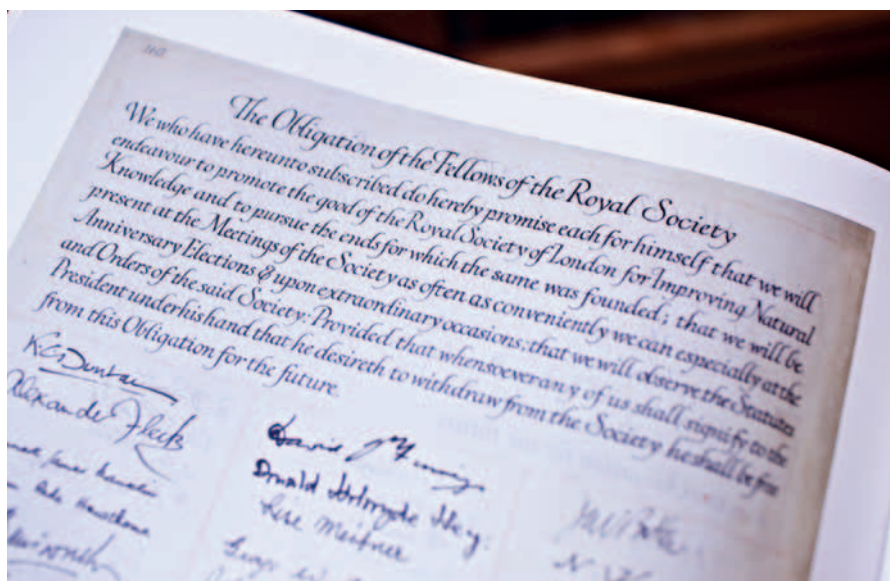 160
The Obligation of the Fellows of the Royal Society
We who have hereunto subscribed do hereby promise each for himself that we will
endeavour to promote the good of the Royal Society of London for Improving Natural
Knowledge and to pursue the ends for which the same was founded; that we will be
present at the Meetings of the Society as often as conveniently we can especially at the
Anniversary Elections & upon extraordinary occasions: that we will observe the Statutes
and Orders of the said Society: Provided that whensoever any of us shall signify to the
President under his hand that he desireth to withdraw from the Society he shall be free
from this Obligation for the future.
Alexander Fleck
Donald Holroyde Hey.
Lise Meitner